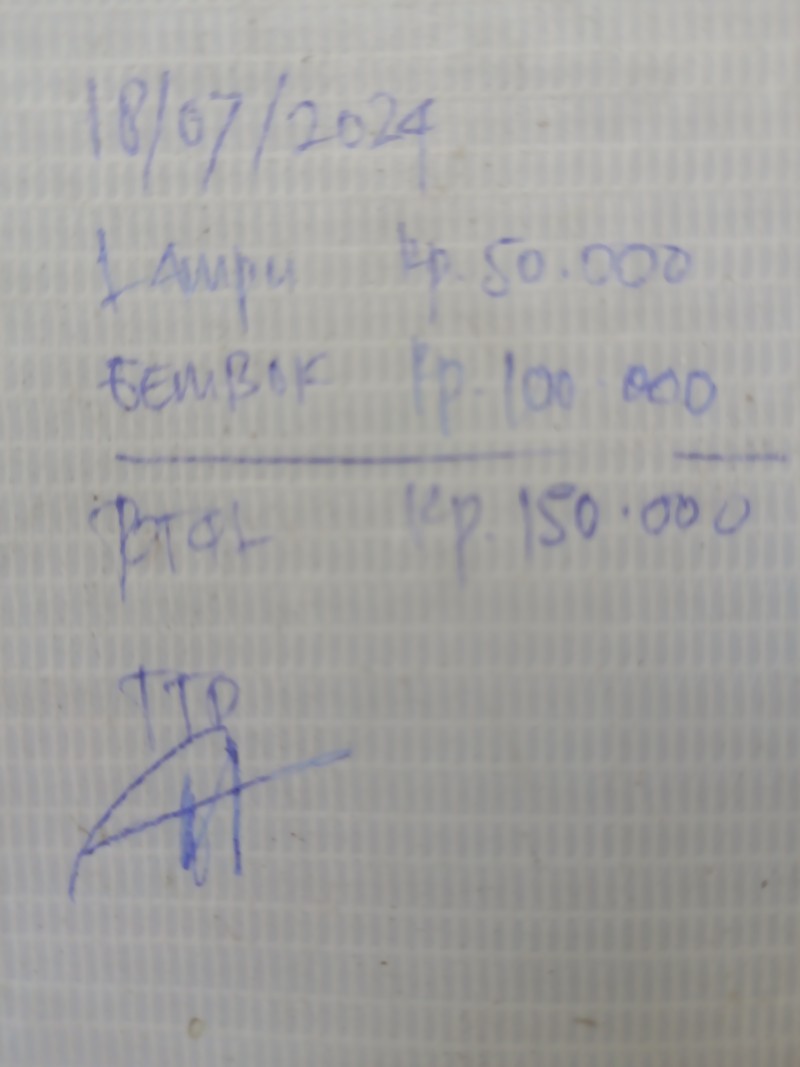 18/07/2024
LAmpu Rp. 50.000
GEMBOK Rp. 100.000
TOTAL Rp. 150.000
TTD